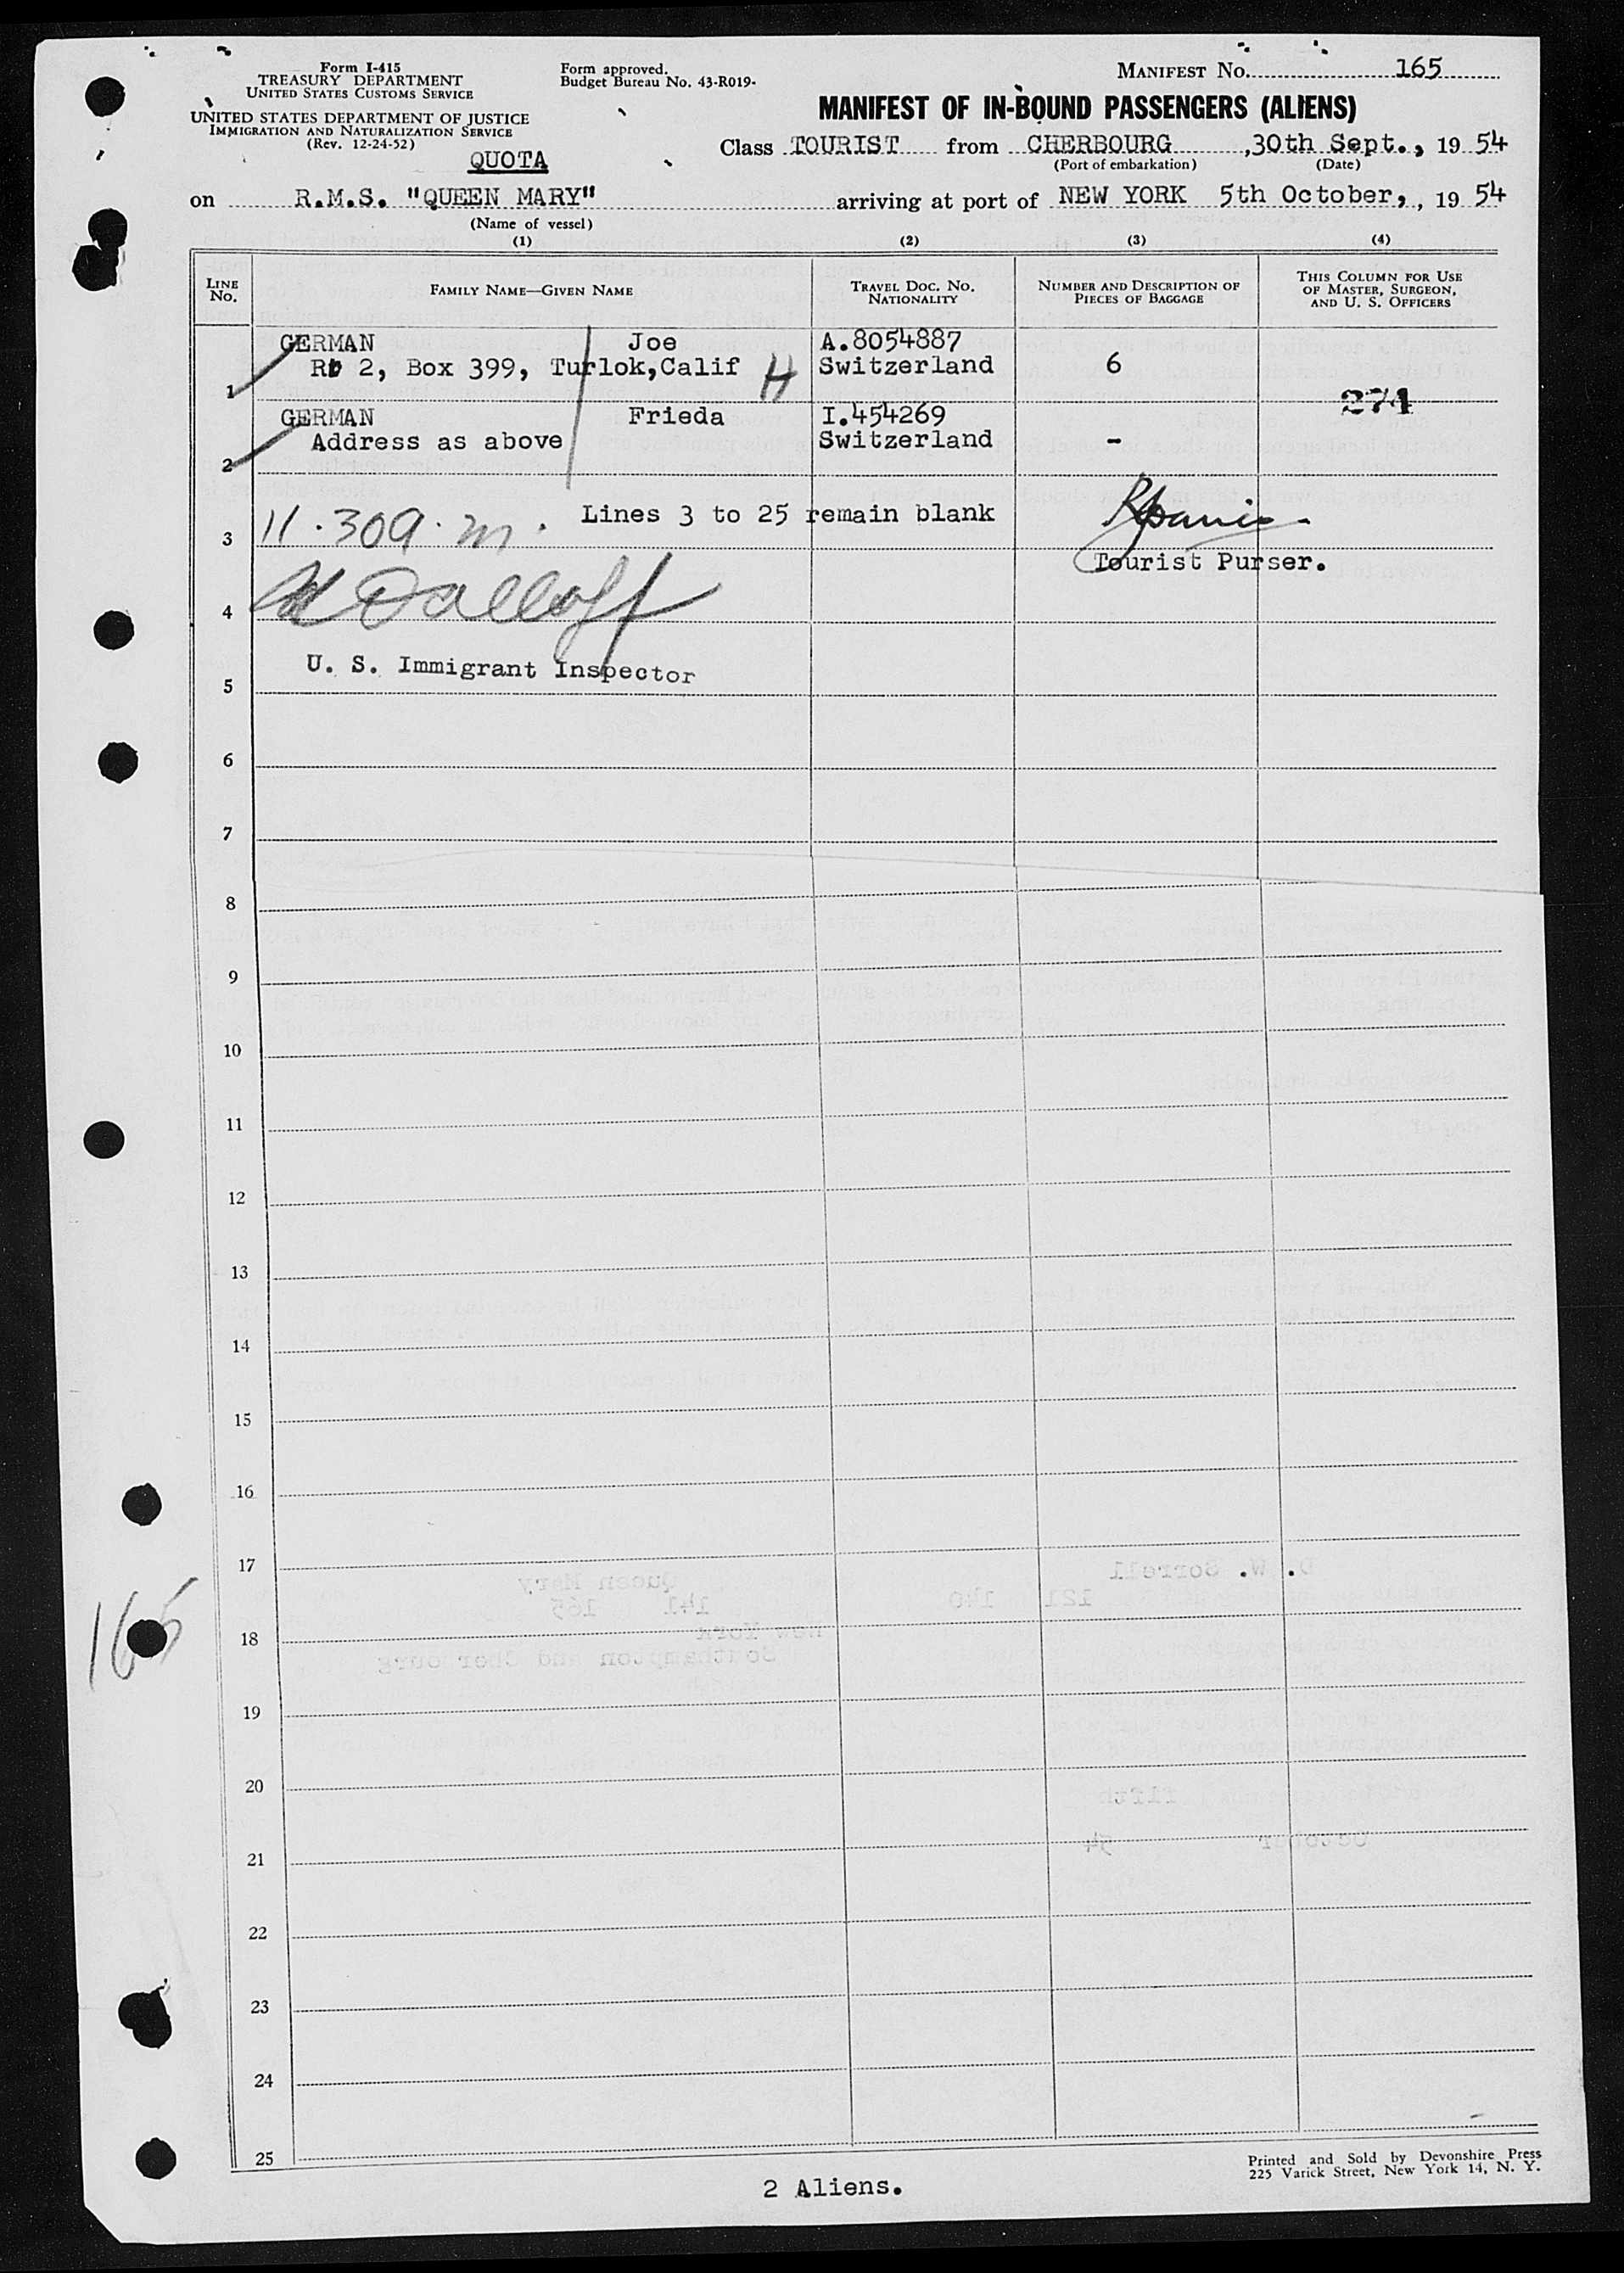 Form I-415
TREASURY DEPARTMENT
UNITED STATES CUSTOMS SERVICE
UNITED STATES DEPARTMENT OF JUSTICE
IMMIGRATION AND NATURALIZATION SERVICE
(Rev. 12-24-52)
Form approved.
Budget Bureau No. 43-R019-
MANIFEST NO. 165
MANIFEST OF IN-BOUND PASSENGERS (ALIENS)
QUOTA
Class TOURIST from CHERBOURG, 30th Sept., 19 54
(Port of embarkation) (Date)
on R.M.S. "QUEEN MARY" arriving at port of NEW YORK 5th October,, 19 54
(Name of vessel)
(1) (2) (3) (4)
LINE NO. FAMILY NAME—GIVEN NAME TRAVEL DOC. NO. NATIONALITY NUMBER AND DESCRIPTION OF PIECES OF BAGGAGE THIS COLUMN FOR USE OF MASTER, SURGEON, AND U. S. OFFICERS
GERMAN Joe A.8054887
1 Rt 2, Box 399, Turlok,Calif H Switzerland 6
274
GERMAN Frieda I.454269
2 Address as above Switzerland -
3 11.309.m. Lines 3 to 25 remain blank
Tourist Purser.
4
U. S. Immigrant Inspector
5
6
7
8
9
10
11
12
13
14
15
16
17
D. W. Sorrell
Queen Mary
121 140
141 165
165
18
New York
Southampton and Cherbourg
19
20
fifth
21
October 54
22
23
24
25
Printed and Sold by Devonshire Press
225 Varick Street, New York 14, N. Y.
2 Aliens.